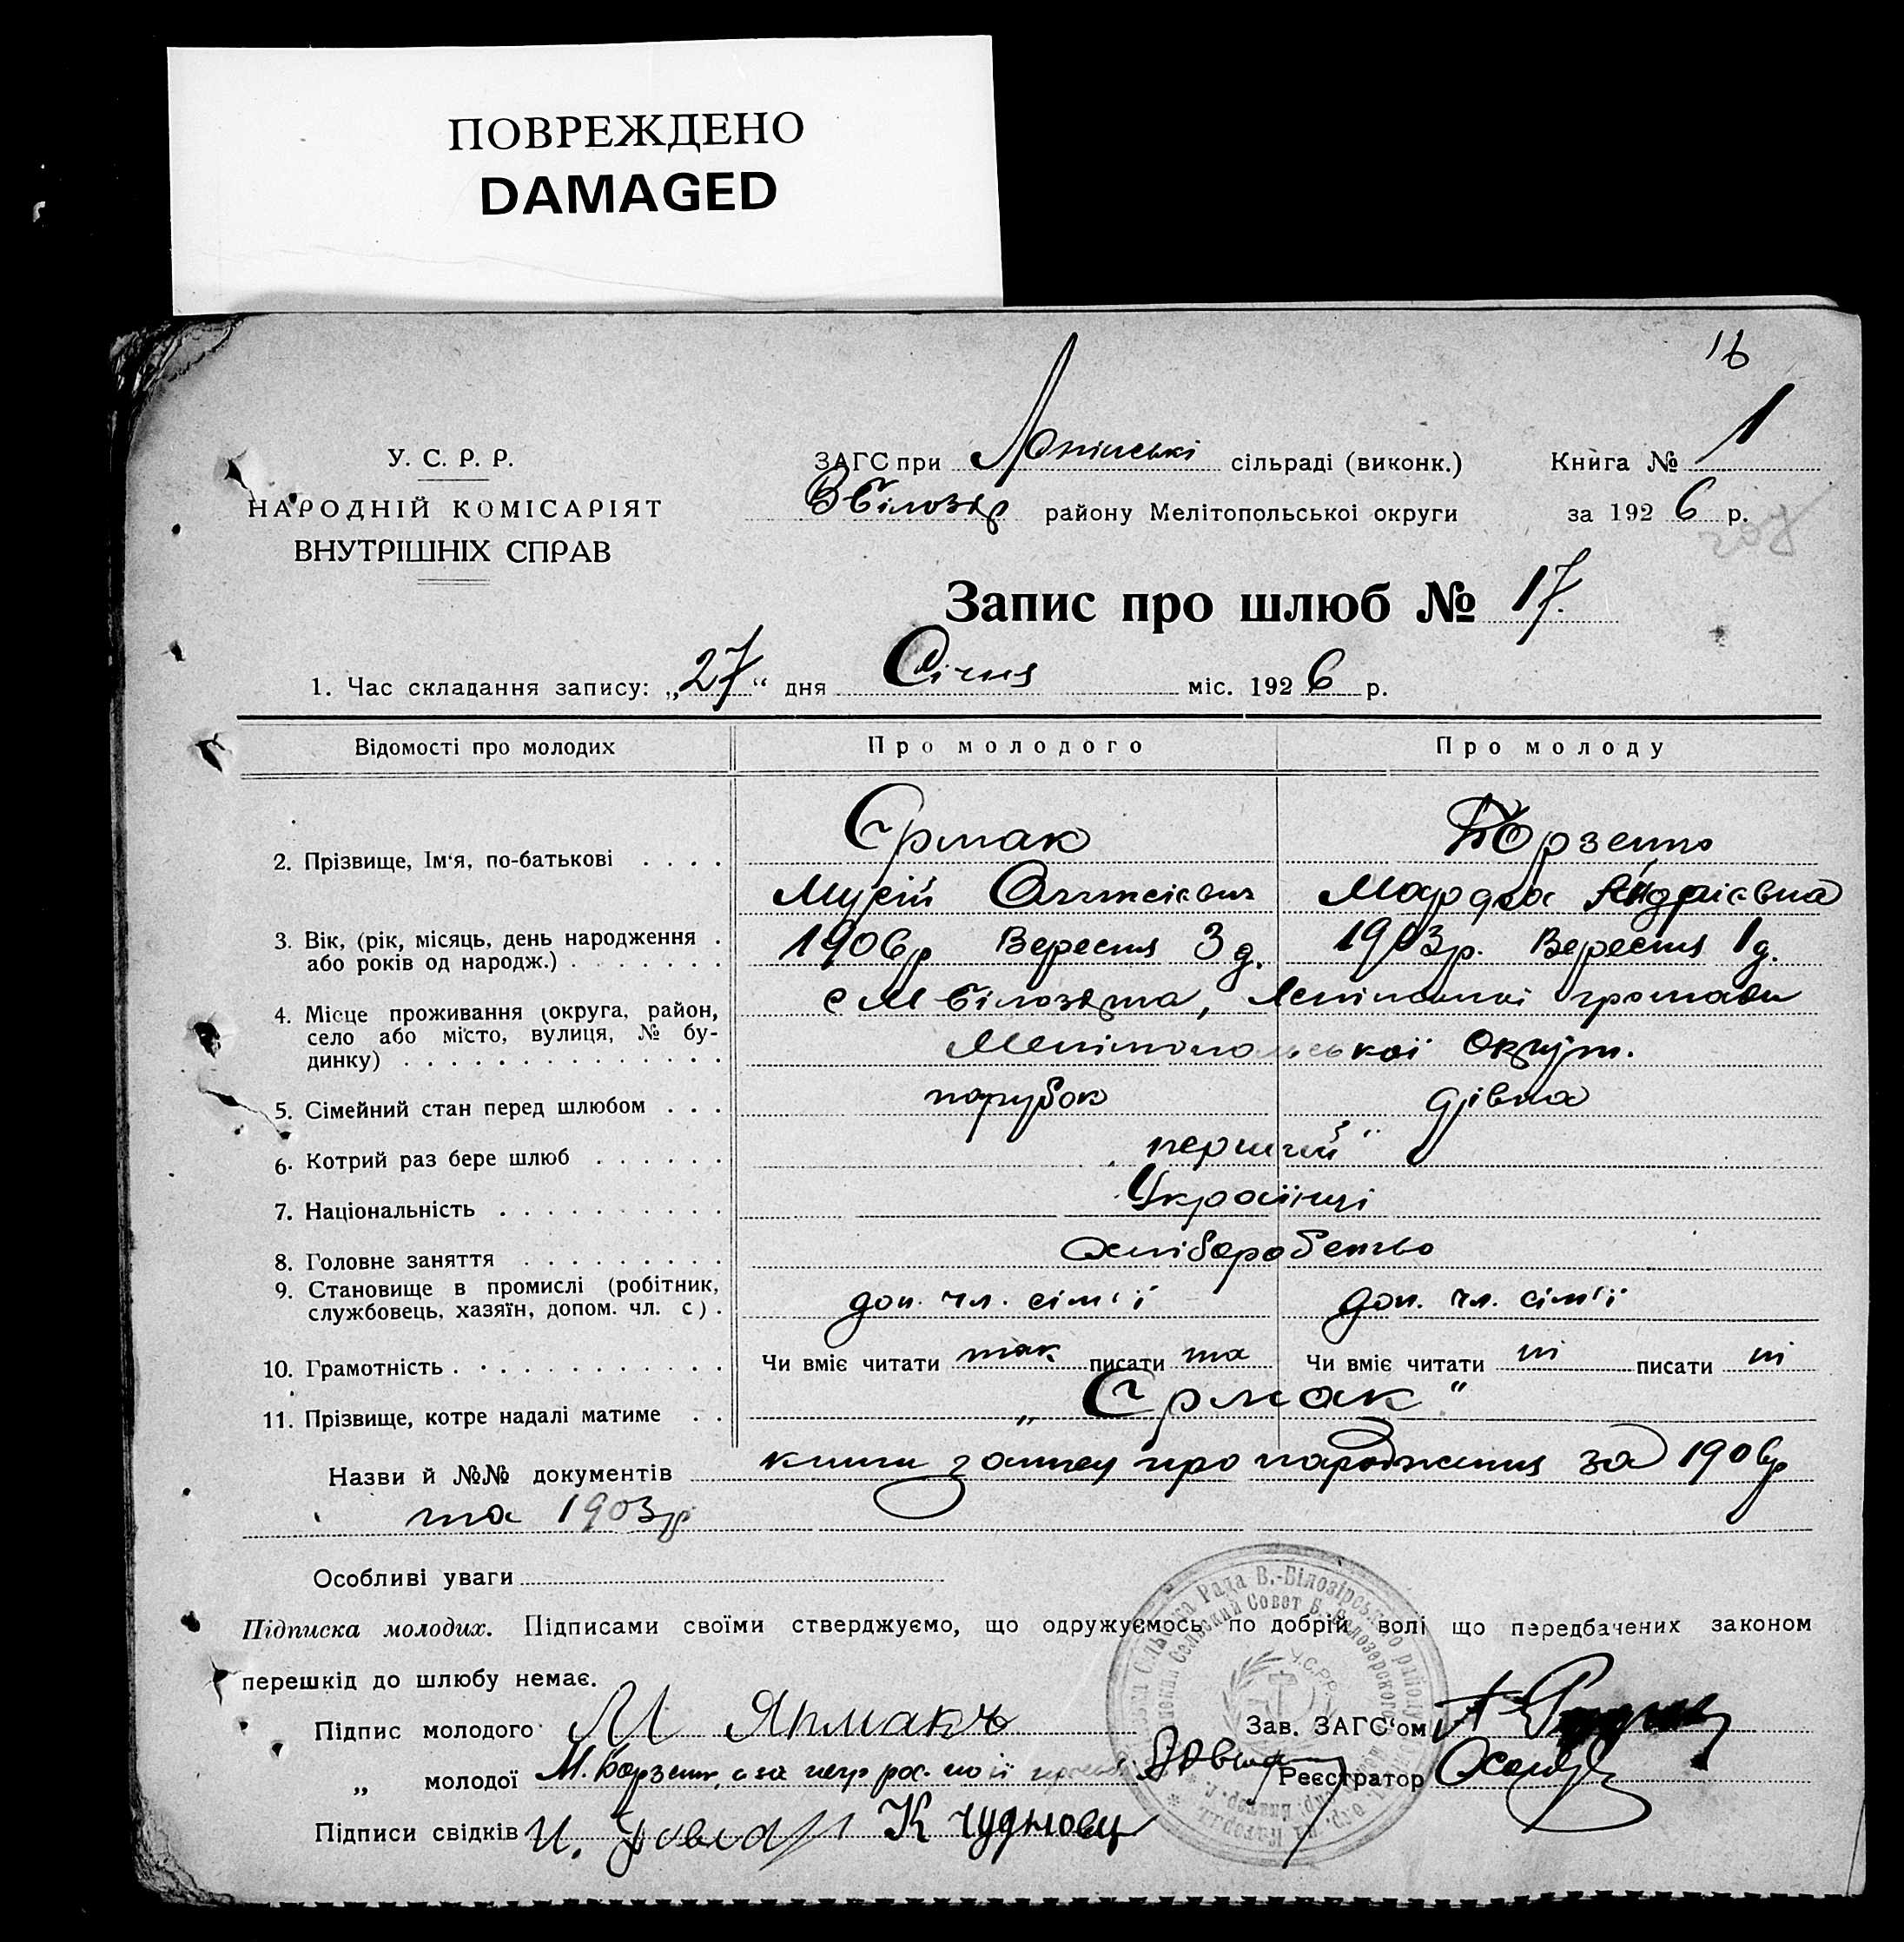 ПОВРЕЖДЕНО
DAMAGED
16
У. С. Р. Р.
НАРОДНІЙ КОМІСАРІЯТ
ВНУТРІШНІХ СПРАВ
ЗАГС при сільраді (виконк.) Книга № 1
В Білозер району Мелітопольської округи за 1926 р.
Запис про шлюб № 17.
1. Час складання запису: „27“ дня Січня міс. 1926 р.
Відомості про молодих Про молодого Про молоду
2. Прізвище, Ім'я, по-батькові . . . . Єрмак Борзенко
Мусій Олексієвич Марфа Андрієвна
3. Вік, (рік, місяць, день народження . 1906р Вересня 3 д. 1903р. Вересня 1 д.
або років од народж.) . . . . . . .
4. Місце проживання (округа, район, с М Білозірка, Ленінської громади
село або місто, вулиця, № бу-
динку) . . . . . . . . . . . . . . Мелітопольської Округи.
5. Сімейний стан перед шлюбом . . . парубок дівка
6. Котрий раз бере шлюб . . . . . . перший
7. Національність . . . . . . . . . . Українці
8. Головне заняття . . . . . . . . . Хліборобство
9. Становище в промислі (робітник,
службовець, хазяїн, допом. чл. с) . доп. чл. сім'ї доп. чл. сім'ї
10. Грамотність . . . . . . . . . . . Чи вміє читати так писати та Чи вміє читати ні писати ні
11. Прізвище, котре надалі матиме . . „Єрмак“
Назви й №№ документів книги запису про народження за 1906р
та 1903р
Особливі уваги
Підписка молодих. Підписами своїми стверджуємо, що одружуємось по добрій волі що передбачених законом
перешкід до шлюбу немає.
Підпис молодого М Ярмакъ Зав. ЗАГС'ом
„ молодої М. Борзенк, а за негр рос. по її Реєстратор
Підписи свідків К Чудновец
Сільська Рада В.-Білозірського району
Сельский Совет Б. Белозерского
У.С.Р.Р.